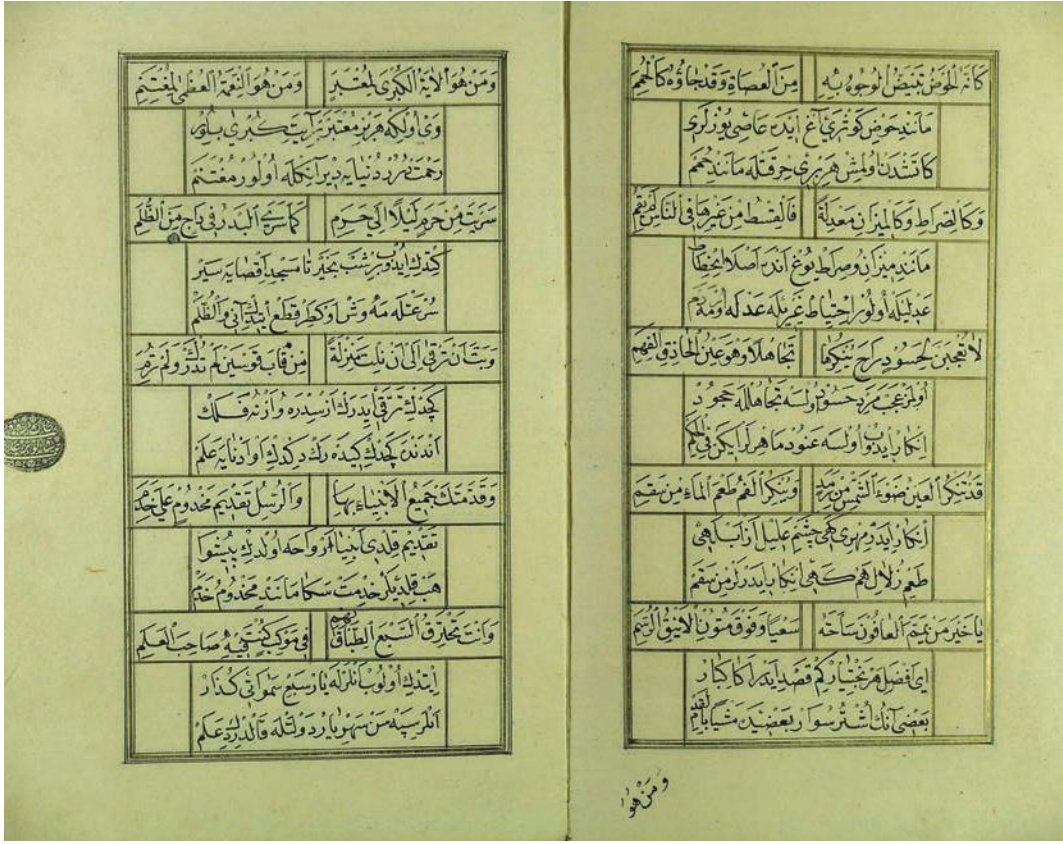 كَاَنَّهُ الْحَوْضُ تَبْيَضُّ الْوُجُوهُ بِهِ مِنَ الْعُصَاةِ وَقَدْ جَاؤُهُ كَالْحُمَمِ
مانند حوض كوثری آغ ایده عاصی یوزلری
كاتشدن اولمش هر بری حرقتله مانند حمم
وَكَالصِّرَاطِ وَكَالْمِيزَانِ مَعْدِلَةً فَالْقِسْطُ مِنْ غَيْرِهَا فِي النَّاسِ لَمْ يَقُمِ
مانند میزان وصراط یوغ انده اصلا
عدلیله اولور احتیاط غیریله عدله
لَا تَعْجَبَنْ لِحَسُودٍ رَاحَ يُنْكِرُهَا تَجَاهُلًا وَهُوَ عَيْنُ الْحَاذِقِ الْفَهِمِ
اولمز عجب مرد حسود اولسه تجاهلله جحود
انكار ایدوب اولسه عنود ماهر لر ایكن فی الحكم
قَدْ تُنْكِرُ الْعَيْنُ ضَوْءَ الشَّمْسِ مِنْ رَمَدٍ وَيُنْكِرُ الْفَمُ طَعْمَ الْمَاءِ مِنْ سَقَمِ
انكار ایدر مهری كهی چشم علیل
طعم زلال هم كهی انكار ایدرلر من سقم
يَا خَيْرَ مَنْ يَمَّمَ الْعَافُونَ سَاحَتَهُ سَعْيًا وَفَوْقَ مُتُونِ الْاَيْنُقِ الرُّسُمِ
ای افضل هر بختیار كم قصد ایدر اكا كبار
بعضی آنك اشتر سوار بعضیده مشیا بالقدم
ومن هو
وَمَنْ هُوَ الْآيَةُ الْكُبْرَى لِمُعْتَبِرٍ وَمَنْ هُوَ النِّعْمَةُ الْعُظْمَى لِمُغْتَنِمِ
وی اولكه هر بر معتبر بر آیت كبری بلور
رحمتدرر دنیایه دیر آنكله اولور مغتنم
سَرَيْتَ مِنْ حَرَمٍ لَيْلًا اِلَى حَرَمٍ كَمَا سَرَى الْبَدْرُ فِي دَاجٍ مِنَ الظُّلَمِ
كتدك ایدوب بر شب بخیر تا مسجد اقصایه سیر
سرعتله مه وش قطع ایتدك آنی والظلم
وَبِتَّ تَرْقَى اِلَى اَنْ نِلْتَ مَنْزِلَةً مِنْ قَابَ قَوْسَيْنِ لَمْ تُدْرَكْ وَلَمْ تُرَمِ
كچدك ترقی ایدرك از سدره و از نه فلك
اندن كچدك كیده رك كدك او ادنایه علم
وَقَدَّمَتْكَ جَمِيعُ الْاَنْبِيَاءِ بِهَا وَالرُّسْلِ تَقْدِيمَ مَخْدُومٍ عَلَى خَدَمِ
تقدیم قلدی انبیا ارواحه اولدك پیشوا
هب قلدیلر خدمت سكا مانند مخدوم خدم
وَاَنْتَ تَخْتَرِقُ السَّبْعَ الطِّبَاقَ بِهِمْ فِي مَوْكِبٍ كُنْتَ فِيهِ صَاحِبَ الْعَلَمِ
ایتدك اولوب انلرله یار سبع سمواتی كذار
دولتله قالدردك علم